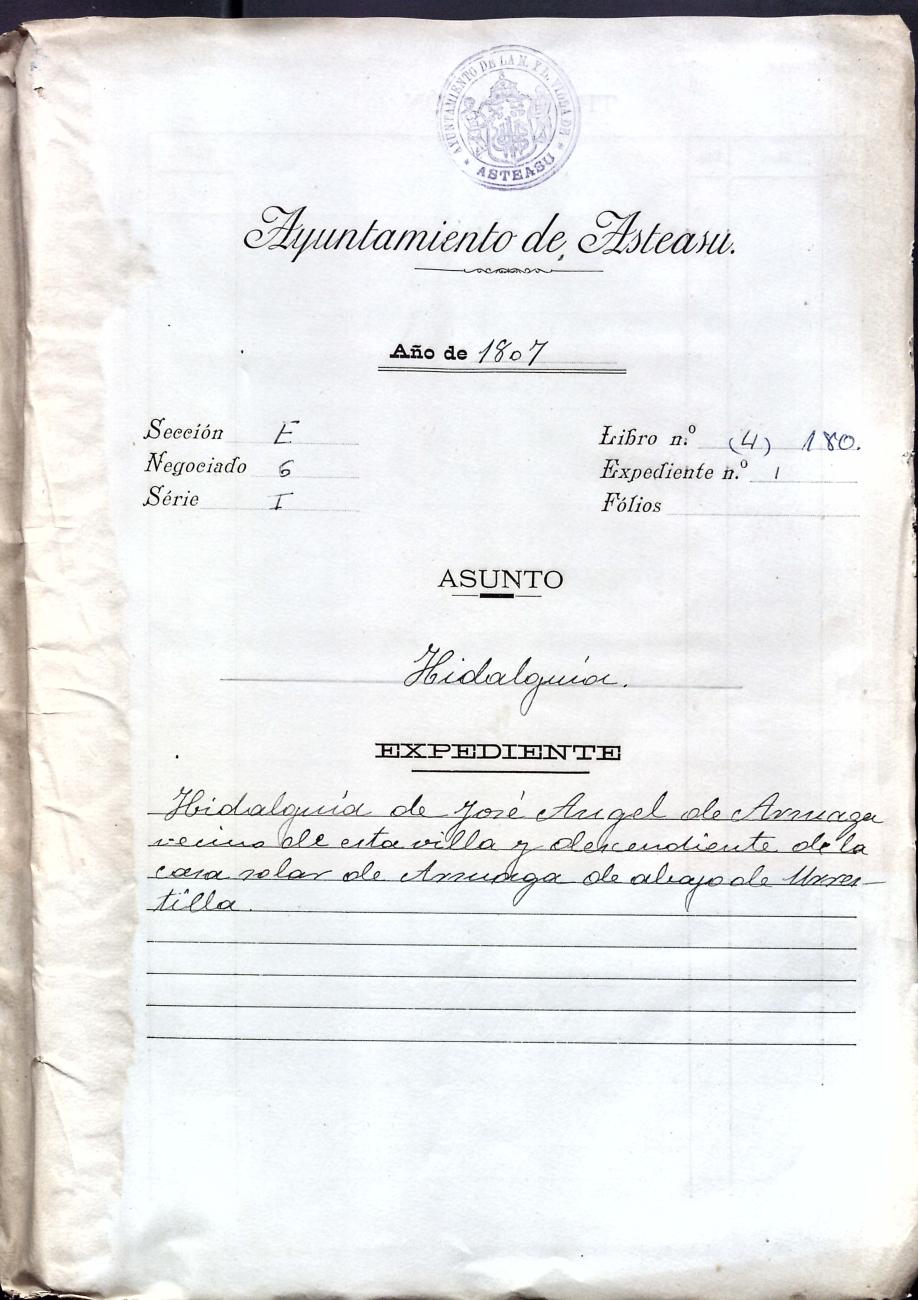 AYUNTAMIENTO DE LA N. Y L. VILLA DE
* ASTEASU *
Ayuntamiento de Asteasu.
Año de 1807
Sección E
Negociado 6
Série I
Libro n.º (4) 180.
Expediente n.º 1
Fólios
ASUNTO
Hidalguía.
EXPEDIENTE
Hidalguía de José Angel de Arruaga
vecino de esta villa y descendiente de la
casa solar de Arruaga de abajo de Urres-
tilla.